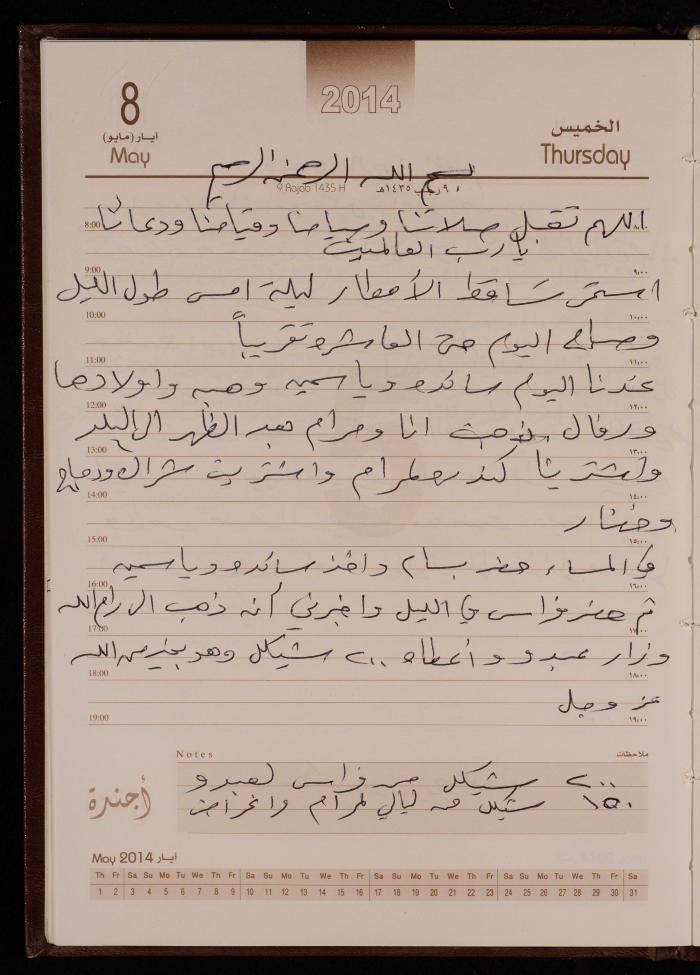 2014
8
أيار (مايو)
May
الخميس
Thursday
بسم الله الرحمن الرحيم
9 Rajab 1435 H
٩ رجب ١٤٣٥هـ
8:00 اللهم تقبل صلاتنا وصيامنا وقيامنا ودعائنا ٨:٠٠
يا رب العالمين
9:00 ٩:٠٠
استمر تساقط الأمطار ليلة امس طول الليل
10:00 ١٠:٠٠
وصباح اليوم حتى العاشرة تقريباً
11:00 ١١:٠٠
عندنا اليوم سائده وياسمين وهبه واولادها
12:00 ١٢:٠٠
ورفال ذهبت انا ومرام بعد الظهر الى البلد
13:00 ١٣:٠٠
واشترينا كندره لمرام واشتريت شراك ودجاج
14:00 ١٤:٠٠
وخضار
15:00 ١٥:٠٠
في المساء حضر بسام واخذ سائده وياسمين
16:00 ١٦:٠٠
ثم حضر فراس في الليل واخبرني أنه ذهب الى رام الله
17:00 ١٧:٠٠
وزار عبدو وأعطاه ٢٠٠ شيكل وهو بخير من الله
18:00 ١٨:٠٠
عز وجل
19:00 ١٩:٠٠
Notes ملاحظات
٢٠٠ شيكل من فراس لعبدو
١٥٠ شيكل من ليالي لمرام واغراض
أجندة
May 2014 أيار
Th Fr Sa Su Mo Tu We Th Fr Sa Su Mo Tu We Th Fr Sa Su Mo Tu We Th Fr Sa Su Mo Tu We Th Fr Sa
1 2 3 4 5 6 7 8 9 10 11 12 13 14 15 16 17 18 19 20 21 22 23 24 25 26 27 28 29 30 31